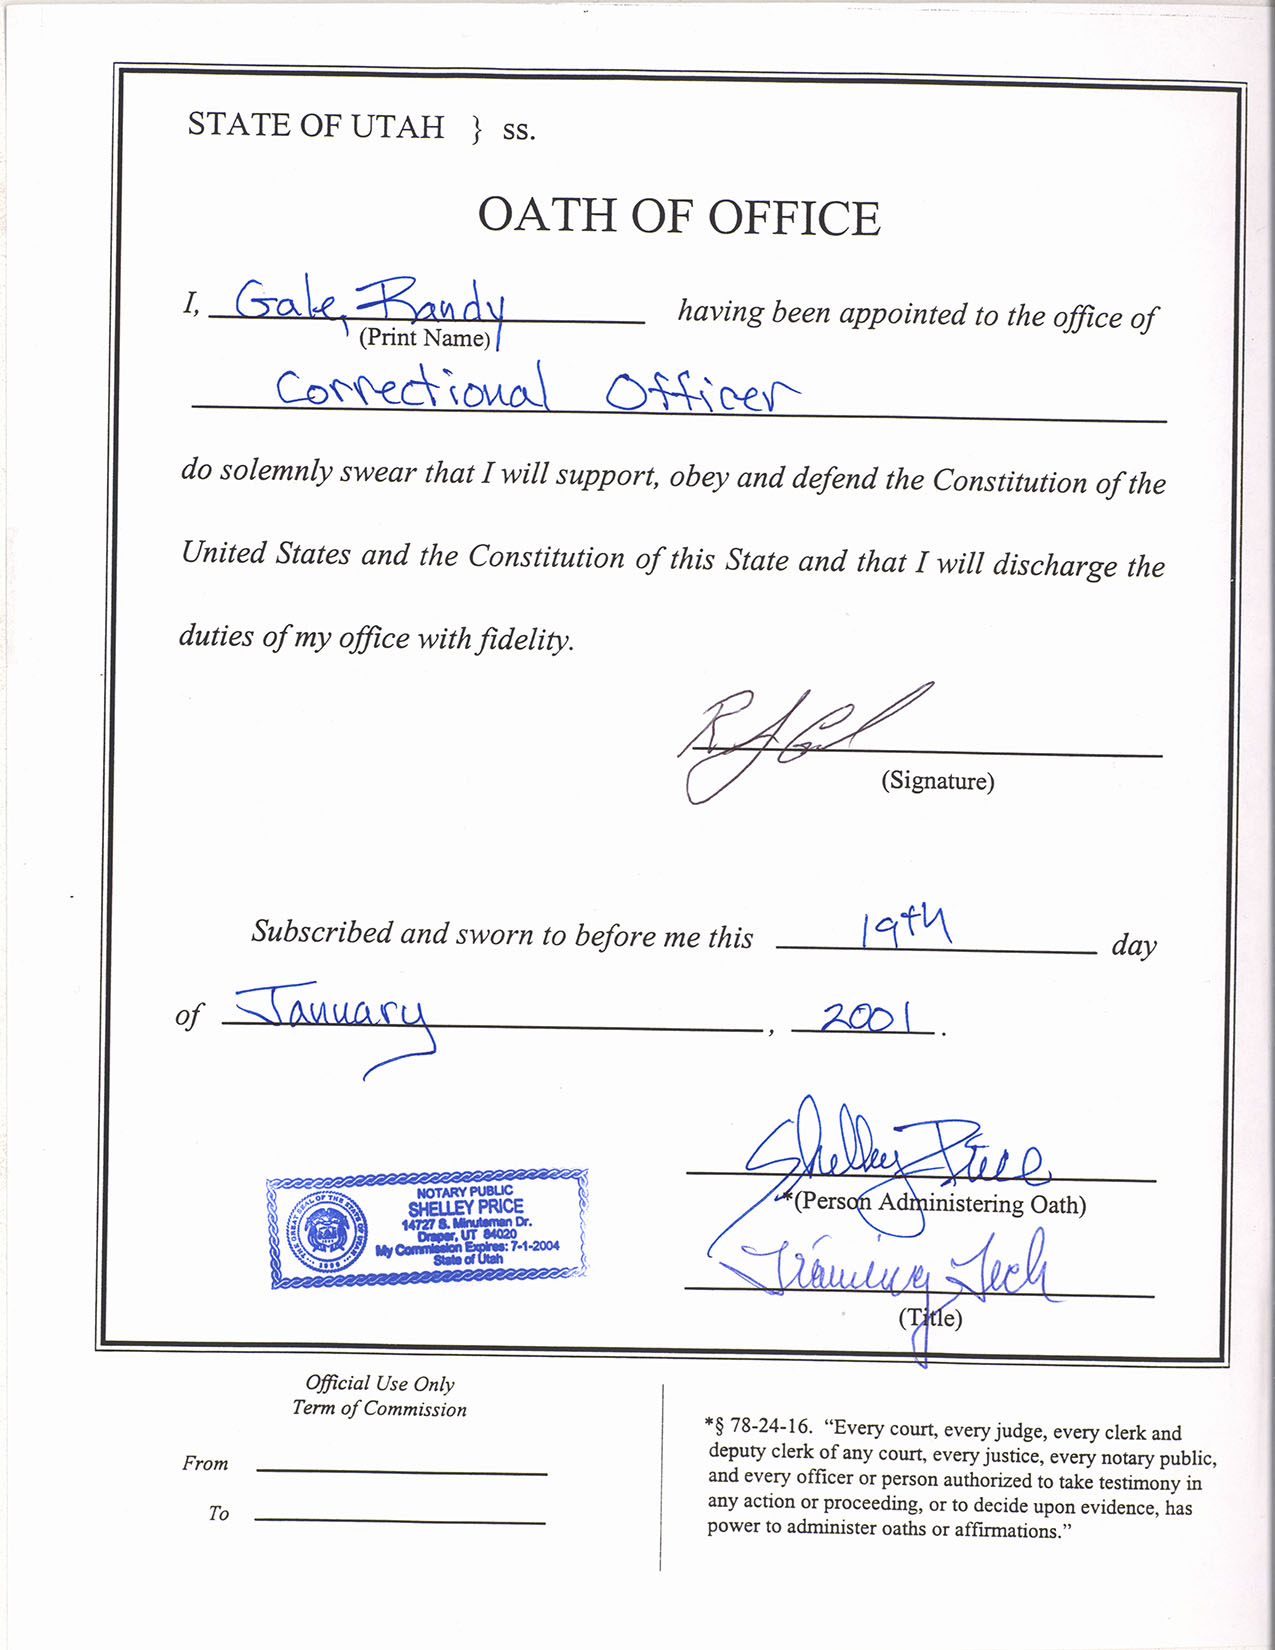 STATE OF UTAH } ss.
OATH OF OFFICE
I, Gale, Randy having been appointed to the office of
(Print Name)
Correctional Officer
do solemnly swear that I will support, obey and defend the Constitution of the
United States and the Constitution of this State and that I will discharge the
duties of my office with fidelity.
(Signature)
Subscribed and sworn to before me this 19th day
of January, 2001.
Shelley Price
*(Person Administering Oath)
Training Tech
(Title)
THE GREAT SEAL OF THE STATE OF UTAH
1896
NOTARY PUBLIC
SHELLEY PRICE
14727 S. Minuteman Dr.
Draper, UT 84020
My Commission Expires: 7-1-2004
State of Utah
Official Use Only
Term of Commission
From
To
*§ 78-24-16. “Every court, every judge, every clerk and
deputy clerk of any court, every justice, every notary public,
and every officer or person authorized to take testimony in
any action or proceeding, or to decide upon evidence, has
power to administer oaths or affirmations.”